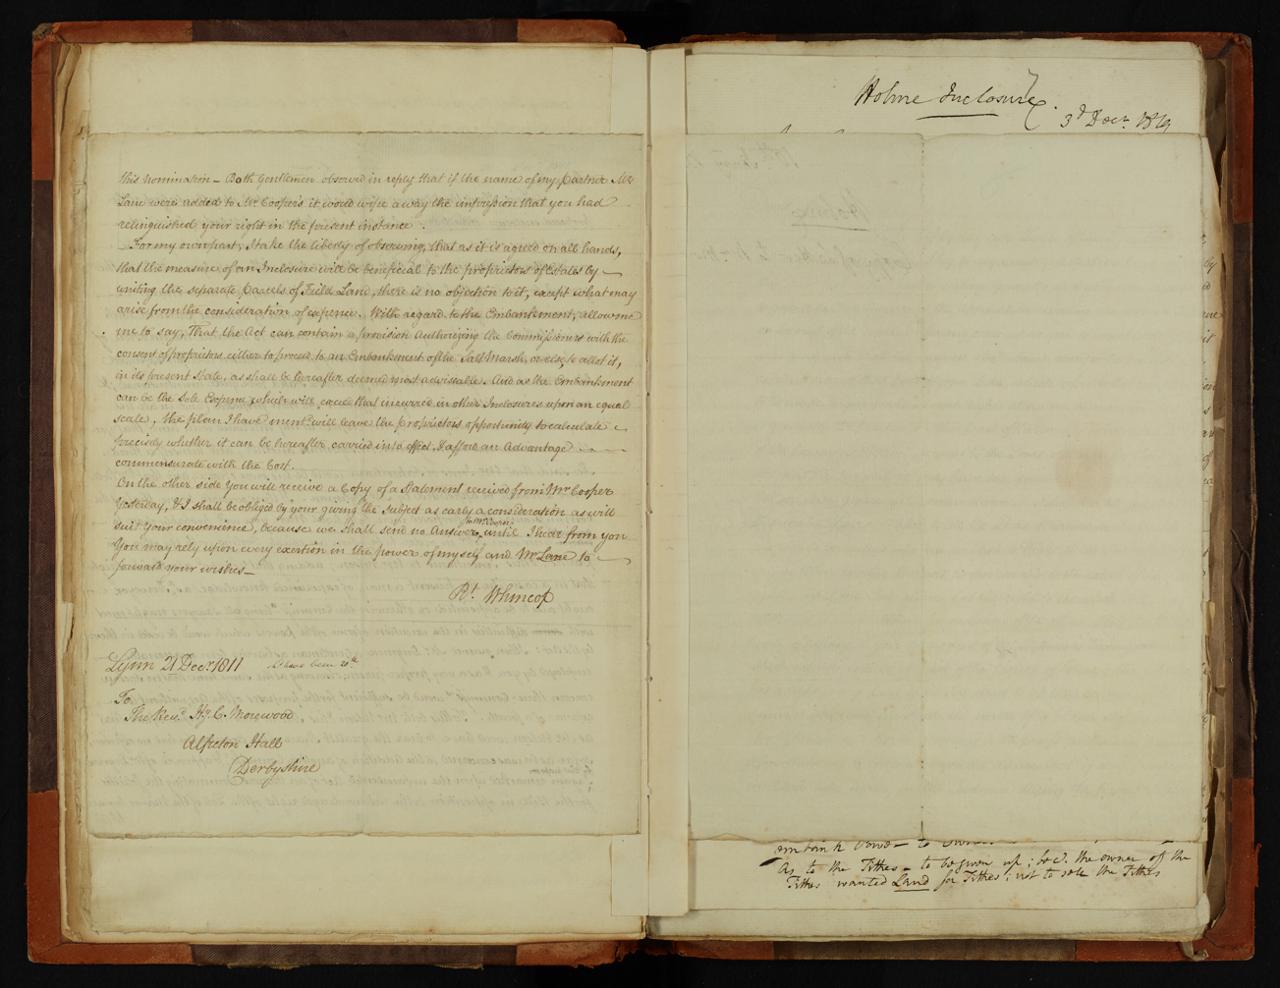 this nomination – Both Gentlemen observed in reply that if the name of my partner Mr
Lane were added to Mr Coopers it would wipe away the impression that you had
relinquished your right in the present instance.
For my own part, I take the liberty of observing, that as it is agreed on all hands,
that the measure of an Inclosure will be beneficial to the proprietors of Estates by
uniting the separate parcels of Field Land, there is no objection to it, except what may
arise from the consideration of expence. With regard to the Embankment, allow me
me to say, That the Act can contain a provision Authorizing the Commissioners with the
consent of proprietors either to proceed to an Embankment of the Salt Marsh, or else, to allot it,
in its present State, as shall be hereafter deemed most adviseable. And as the Embankment
can be the Sole Expence which will exceed that incurred in other Inclosures upon an equal
scale, the plan I have ment.d will leave the proprietors opportunity to calculate
precisely whether it can be hereafter carried into effect & afford an Advantage
commensurate with the Cost.
On the other side You will receive a Copy of a Statement received from Mr Cooper
Yesterday, & I shall be obliged by your giving the Subject as early a consideration as will
suit Your convenience, because we shall send no Answer to Mr Cooper until I hear from you
You may rely upon every exertion in the power of myself and Mr Lane to
forward your wishes –
Rt. Whincop
Lynn 21 Decr. 1811
To
The Revd. Hy. C. Morewood
Alfreton Hall
Derbyshire
Holme Inclosure.
3d Decr.
Holme
As to the Tithes – to be given up; the owner of the
Tithes wanted Land for Tithes; not to sole the Tithes